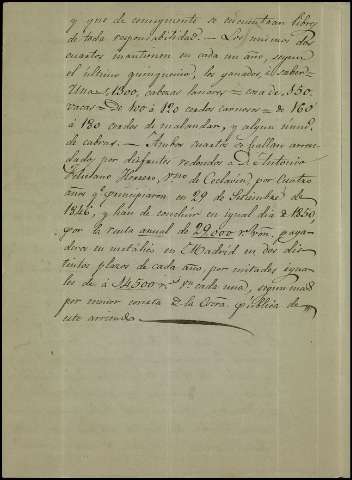 y que de consiguiente se encuentran libres
de toda responsabilidad. — Los mismos dos
cuartos mantienen en cada un año, segun
el último quinquenio, los ganados, á saber =
Una 1,300, cabezas lanares = cxa de 350.
vacas = De 100 á 120 cerdos carneros = de 160
á 180 cerdos de malandar, y algun núm.º
de cabras. — Ambos cuartos se hallan arren-
dados por disfrutes redondos á D. Antonio
Feliciano Herrero, vno de por cuatro
años q.e principiaron en 29 de Setiembre de
1846, y han de concluir en igual dia de 1850,
por la renta anual de 29.000 rs. vn, paga-
deros en metálico en Madrid en dos dis-
tintos plazos de cada año, por mitades igua-
les de á 14.500 r.s vn cada una, segun mas
por menor consta de la Escra. pública de
este arriendo.